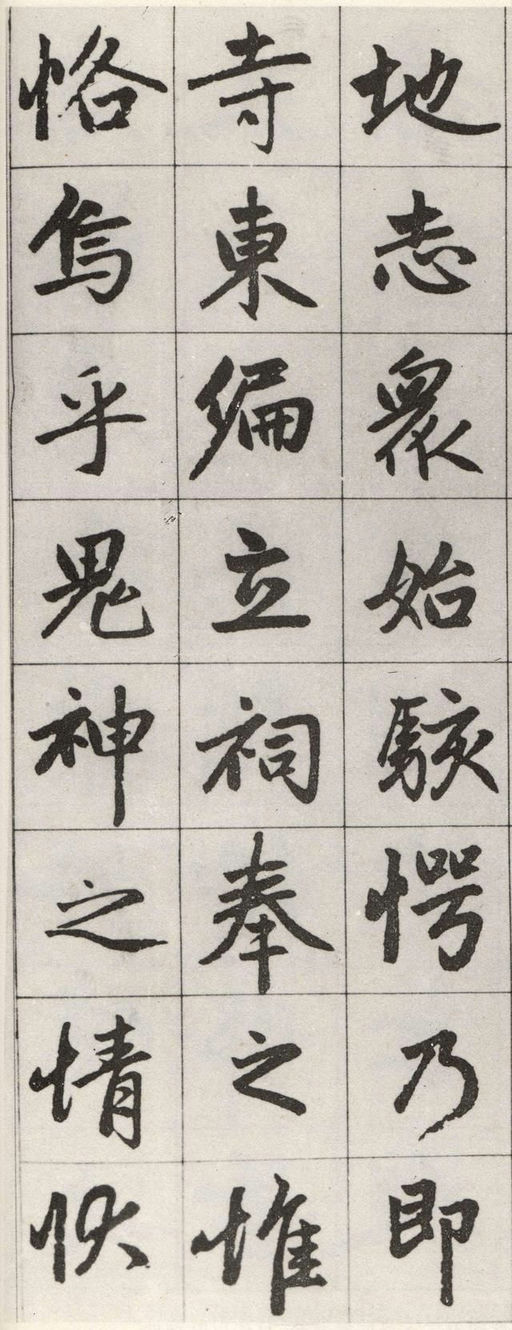 地志衆始駭愕乃即
寺東偏立祠奉之惟
恪焉乎鬼神之情狀